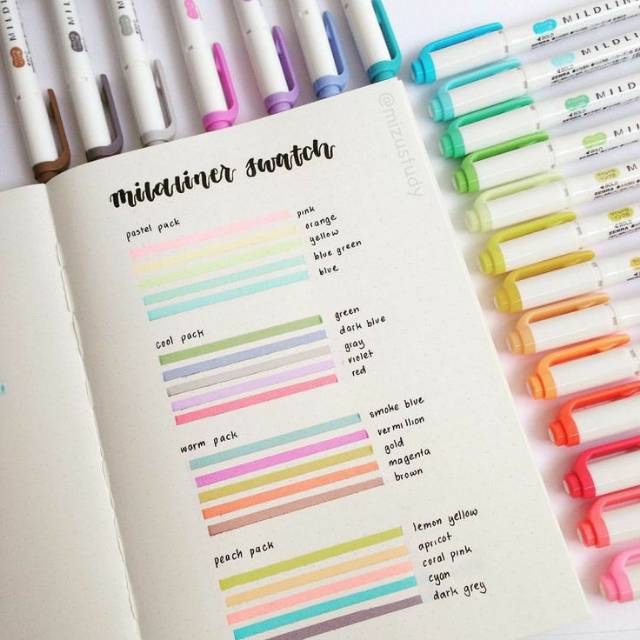 mildliner swatch
@mizustudy
pastel pack
pink
orange
yellow
blue green
blue
cool pack
green
dark blue
gray
violet
red
warm pack
smoke blue
vermillion
gold
magenta
brown
peach pack
lemon yellow
apricot
coral pink
cyan
dark grey
MILDLIN
MILDL